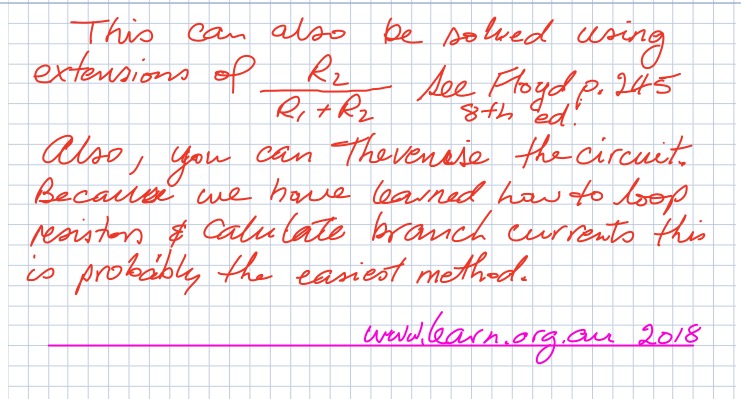 This can also be solved using
extensions of R2 / R1 + R2 See Floyd p. 245
8th ed.
Also, you can Thevenise the circuit.
Because we have learned how to loop
resistors & Calculate branch currents this
is probably the easiest method.
www.learn.org.au 2018